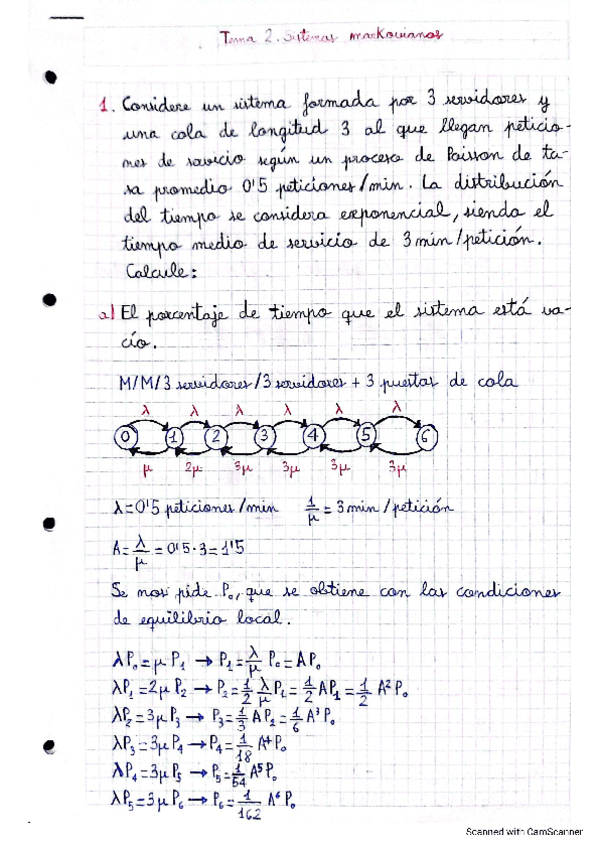 Tema 2. Sistemas markovianos
1. Considere un sistema formada por 3 servidores y
una cola de longitud 3 al que llegan peticio-
nes de servicio según un proceso de Poisson de ta-
sa promedio 0'5 peticiones/min. La distribución
del tiempo se considera exponencial, siendo el
tiempo medio de servicio de 3 min/petición.
Calcule:
a) El porcentaje de tiempo que el sistema está va-
cío.
M/M/3 servidores/3 servidores + 3 puestos de cola
λ λ λ λ λ λ
0 1 2 3 4 5 6
μ 2μ 3μ 3μ 3μ 3μ
λ=0'5 peticiones/min 1/μ = 3 min/petición
A = λ/μ = 0'5·3 = 1'5
Se nos pide P₀, que se obtiene con las condiciones
de equilibrio local.
λP₀ = μP₁ → P₁ = λ/μ P₀ = AP₀
λP₁ = 2μP₂ → P₂ = 1/2 λ/μ P₁ = 1/2 AP₁ = 1/2 A²P₀
λP₂ = 3μP₃ → P₃ = 1/3 AP₂ = 1/6 A³P₀
λP₃ = 3μP₄ → P₄ = 1/18 A⁴P₀
λP₄ = 3μP₅ → P₅ = 1/54 A⁵P₀
λP₅ = 3μP₆ → P₆ = 1/162 A⁶P₀
Scanned with CamScanner